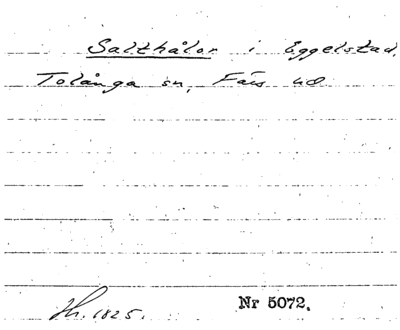 Salthålor i Eggelstad,
Tolånga sn, Färs hd.
Hh. 1825. Nr 5072.